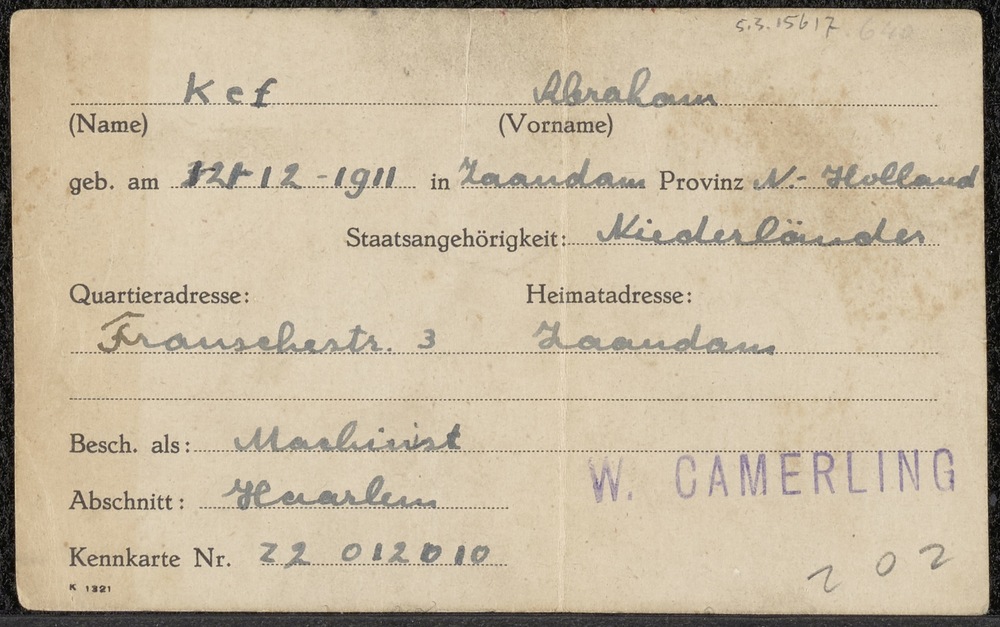 5.3.15617
Kef Abraham
(Name) (Vorname)
geb. am 12-12-1911 in Zaandam Provinz N.-Holland
Staatsangehörigkeit: Niederländer
Quartieradresse: Heimatadresse:
Franschestr. 3 Zaandam
Besch. als: Machinist
Abschnitt: Haarlem
W. CAMERLING
Kennkarte Nr. Z2 012010
202
K 1321